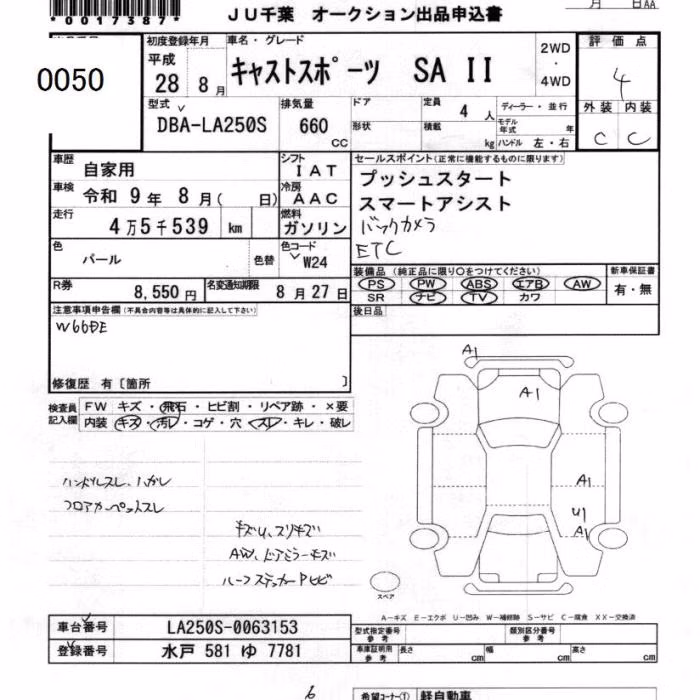 *0017387*
JU千葉 オークション出品申込書
月 日AA
0050
初度登録年月
平成
28 8 月
車名・グレード
キャストスポーツ SA II
2WD
・
4WD
評価点
4
外装 内装
C C
型式
DBA-LA250S
排気量
660
CC
ドア
形状
定員
4 人
積載
kg
ディーラー・並行
モデル年式 年
ハンドル 左・右
車歴
自家用
シフト
IAT
車検
令和 9 年 8 月( 日)
冷房
AAC
走行
4万5千539 km
燃料
ガソリン
セールスポイント(正常に機能するものに限ります)
プッシュスタート
スマートアシスト
バックカメラ
ETC
色
パール
色替
色コード
W24
R券
8,550円
名変通知期限
8月27日
装備品(純正品に限り○をつけてください)
PS PW ABS エアB AW
SR ナビ TV カワ
新車保証書
有・無
後日品
注意事項申告欄(不具合内容等は具体的に記入して下さい)
修復歴 有〔箇所 〕
検査員
記入欄
FW キズ・飛石・ヒビ割・リペア跡・×要
内装 キズ・汚レ・コゲ・穴・スレ・キレ・破レ
ハンドルスレ、ハガレ
フロアカーペットスレ
キズU、スリキズ
AW、ドアミラーキズ
ルーフステッカーPヒビ
A1
A1
A1
U1
A1
スペア
A-キズ E-エクボ U-凹み W-補修跡 S-サビ C-腐食 XX-交換済
車台番号
LA250S-0063153
登録番号
水戸 581 ゆ 7781
型式指定番号
参考
類別区分番号
参考
車庫証明用
参考
長さ cm
幅 cm
高さ cm
6
希望コーナー①
軽自動車